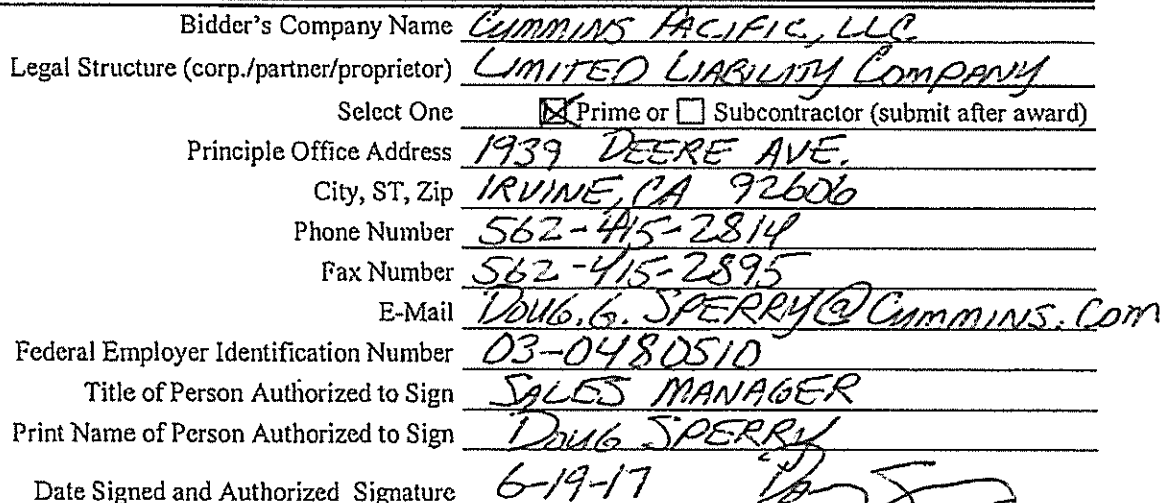 Bidder's Company Name CUMMINS PACIFIC, LLC
Legal Structure (corp./partner/proprietor) LIMITED LIABILITY COMPANY
Select One ☒ Prime or ☐ Subcontractor (submit after award)
Principle Office Address 1939 DEERE AVE.
City, ST, Zip IRVINE, CA 92606
Phone Number 562-415-2814
Fax Number 562-415-2895
E-Mail DOUG.G.SPERRY@CUMMINS.COM
Federal Employer Identification Number 03-0480510
Title of Person Authorized to Sign SALES MANAGER
Print Name of Person Authorized to Sign DOUG SPERRY
Date Signed and Authorized Signature 6-19-17